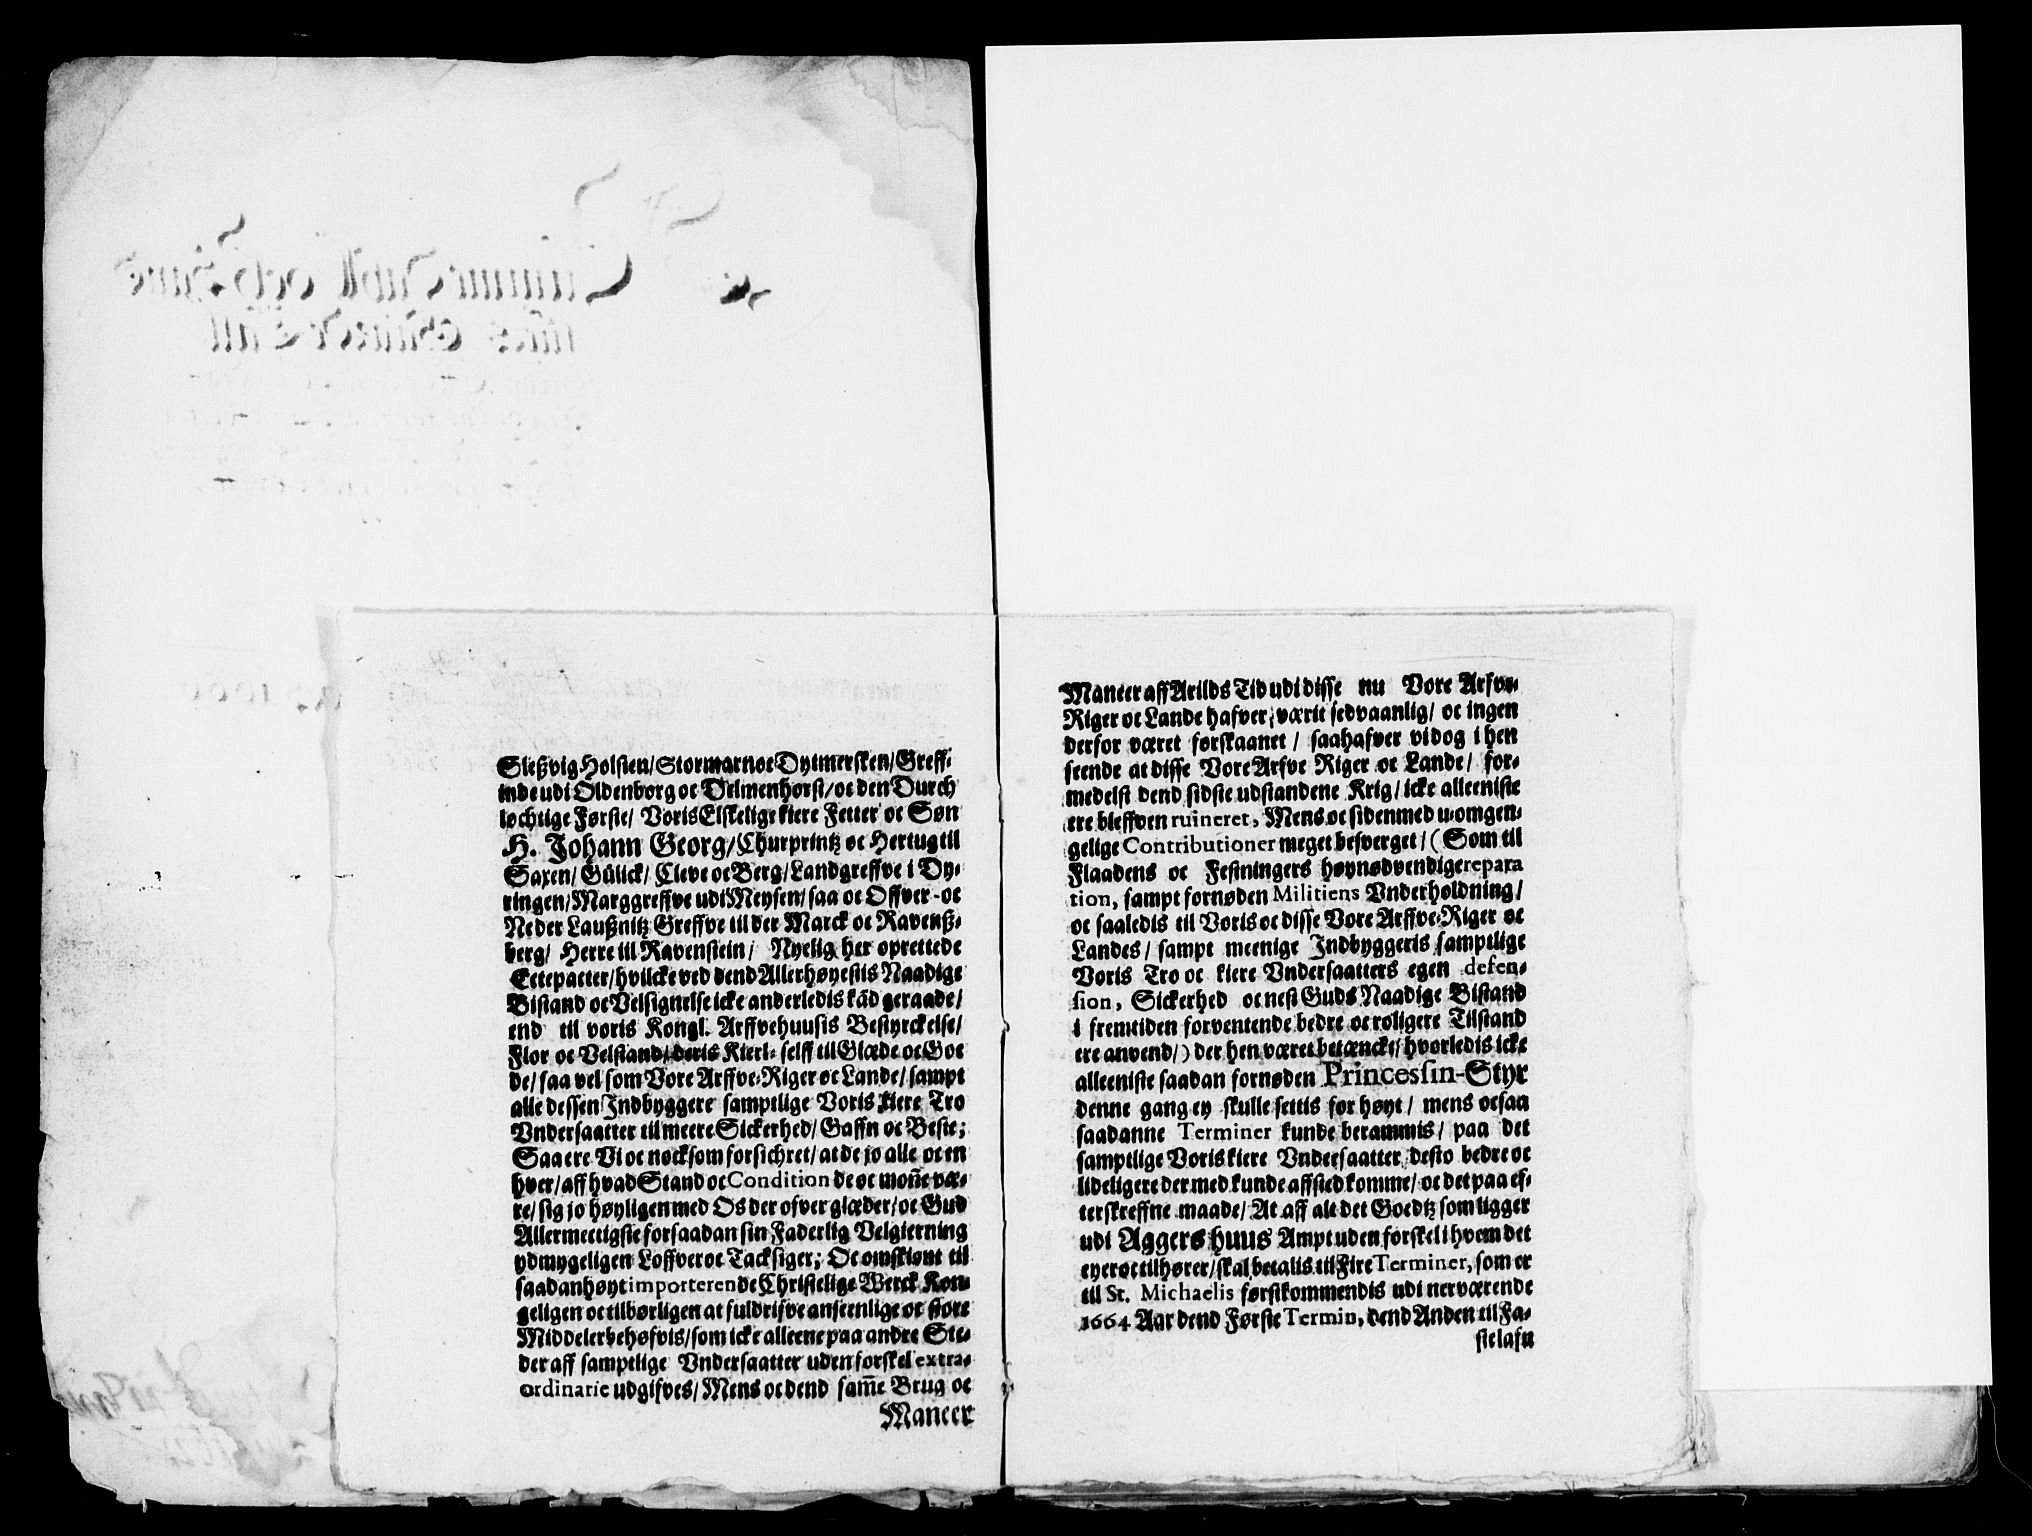 Sleßvig Holsten/ Stormarn oc Dytmersken/ Greff-
inde udi Oldenborg oc Delmenhorst/ oc den Durch
løchtige Første/ Voris Elskelige kiere Fetter oc Søn
H. Johann Georg/ Churprintz oc Hertug til
Saxen/ Gülick/ Cleve oc Berg/ Landgreffve i Dy-
ringen/ Marggreffve udi Meysen/ saa oc Offver- oc
Neder Laußnitz Greffve til der Marck oc Ravenß-
berg/ Herre til Ravenstein/ Nyelig her oprettede
Ectepacter/ hvilcke ved dend Allerhøyestis Naadige
Bistand oc Velsignelse icke anderledis kād geraade/
end til voris Kongl. Arffvehuusis Bestyrckelse/
Flor oc Velstand/ deris Kierl- selff til Glæde oc Goe
de/ saa vel som Vore Arffve-Riger oc Lande/ sampt
alle dessen Indbyggere samptlige Voris kiere Tro
Vndersaatter til meere Sickerhed/ Gaffn oc Beste;
Saa ere Vi oc nock som forsichret/ at de jo alle oc en
hver/ aff hvad Stand oc Condition de oc mon̄e væ-
re/ sig jo høyligen med Os der ofver glæder/ oc Gud
Allermectigste for saadan sin Faderlig Velgierning
ydmygeligen Loffver oc Tacksiger; Oc omskiønt til
saadan høyt importerende Christelige Werck Kon-
geligen oc tilbørligen at fuldrifve anseenlige oc store
Middeler behøfvis/ som icke alleene paa andre Ste-
der aff samptlige Vndersaatter uden forskel extra-
ordinarie udgifves/ Mens oc dend sam̄e Brug oc
Maneer
Maneer aff Arilds Tid udi disse nu Vore Arfve-
Riger oc Lande hafver værit sedvaanlig/ oc ingen
derfor været forskaanet/ saa hafver vi dog i hen
seende at disse Vore Arfve Riger oc Lande/ for-
medelst dend sidste udstandene Krig/ icke alleeniste
ere bleffven ruineret, Mens oc siden med u-omgen-
gelige Contributioner meget besverget/ (Som til
Flaadens oc Festningers høynødvendige repara
tion, sampt fornøden Militiens Vnderholdning/
oc saaledis til Voris oc disse Vore Arffve-Riger oc
Landes/ sampt meenige Indbyggeris samptlige
Voris Tro oc kiere Vndersaatters egen defen-
sion, Sickerhed oc nest Guds Naadige Bistand
i fremtiden forventende bedre oc roligere Tilstand
ere anvend/) der hen været betænckt/ hvorledis icke
alleeniste saadan fornøden Princessin-Styr
denne gang ey skulle settis for høyt/ mens oc saa
saadanne Terminer kunde berammis/ paa det
samptlige Voris kiere Vndersaatter desto bedre oc
lideligere der med kunde affsted komme/ oc det paa ef-
terskreffne maade/ At aff alt det Goedtz som ligger
udi Aggershuus Ampt uden forskel i hvem det
eyer oc tilhører/ skal betalis til Fire Terminer, som er
til St. Michaelis førstkommendis udi nerværende
1664 Aar dend Første Termin, dend Anden til Fa-
stelafn